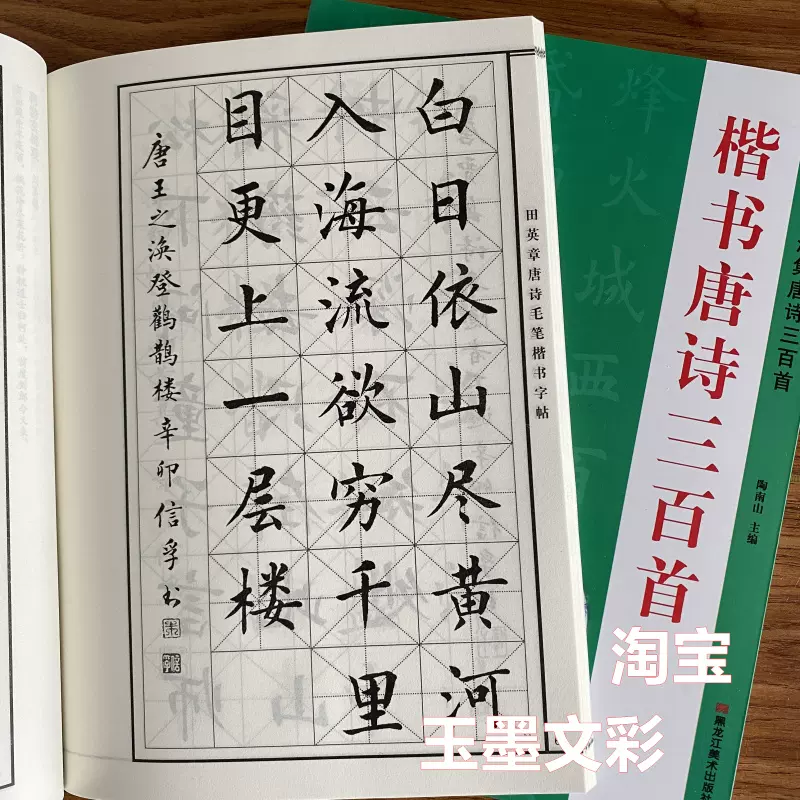 白日依山尽黄河
入海流欲穷千里
目更上一层楼
唐王之涣登鹳鹊楼辛卯信孚书
田英章唐诗毛笔楷书字帖
烽火城西
楷书唐诗三百首
集唐诗三百首
陶南山 主编
黑龙江美术出版社
淘宝
玉墨文彩